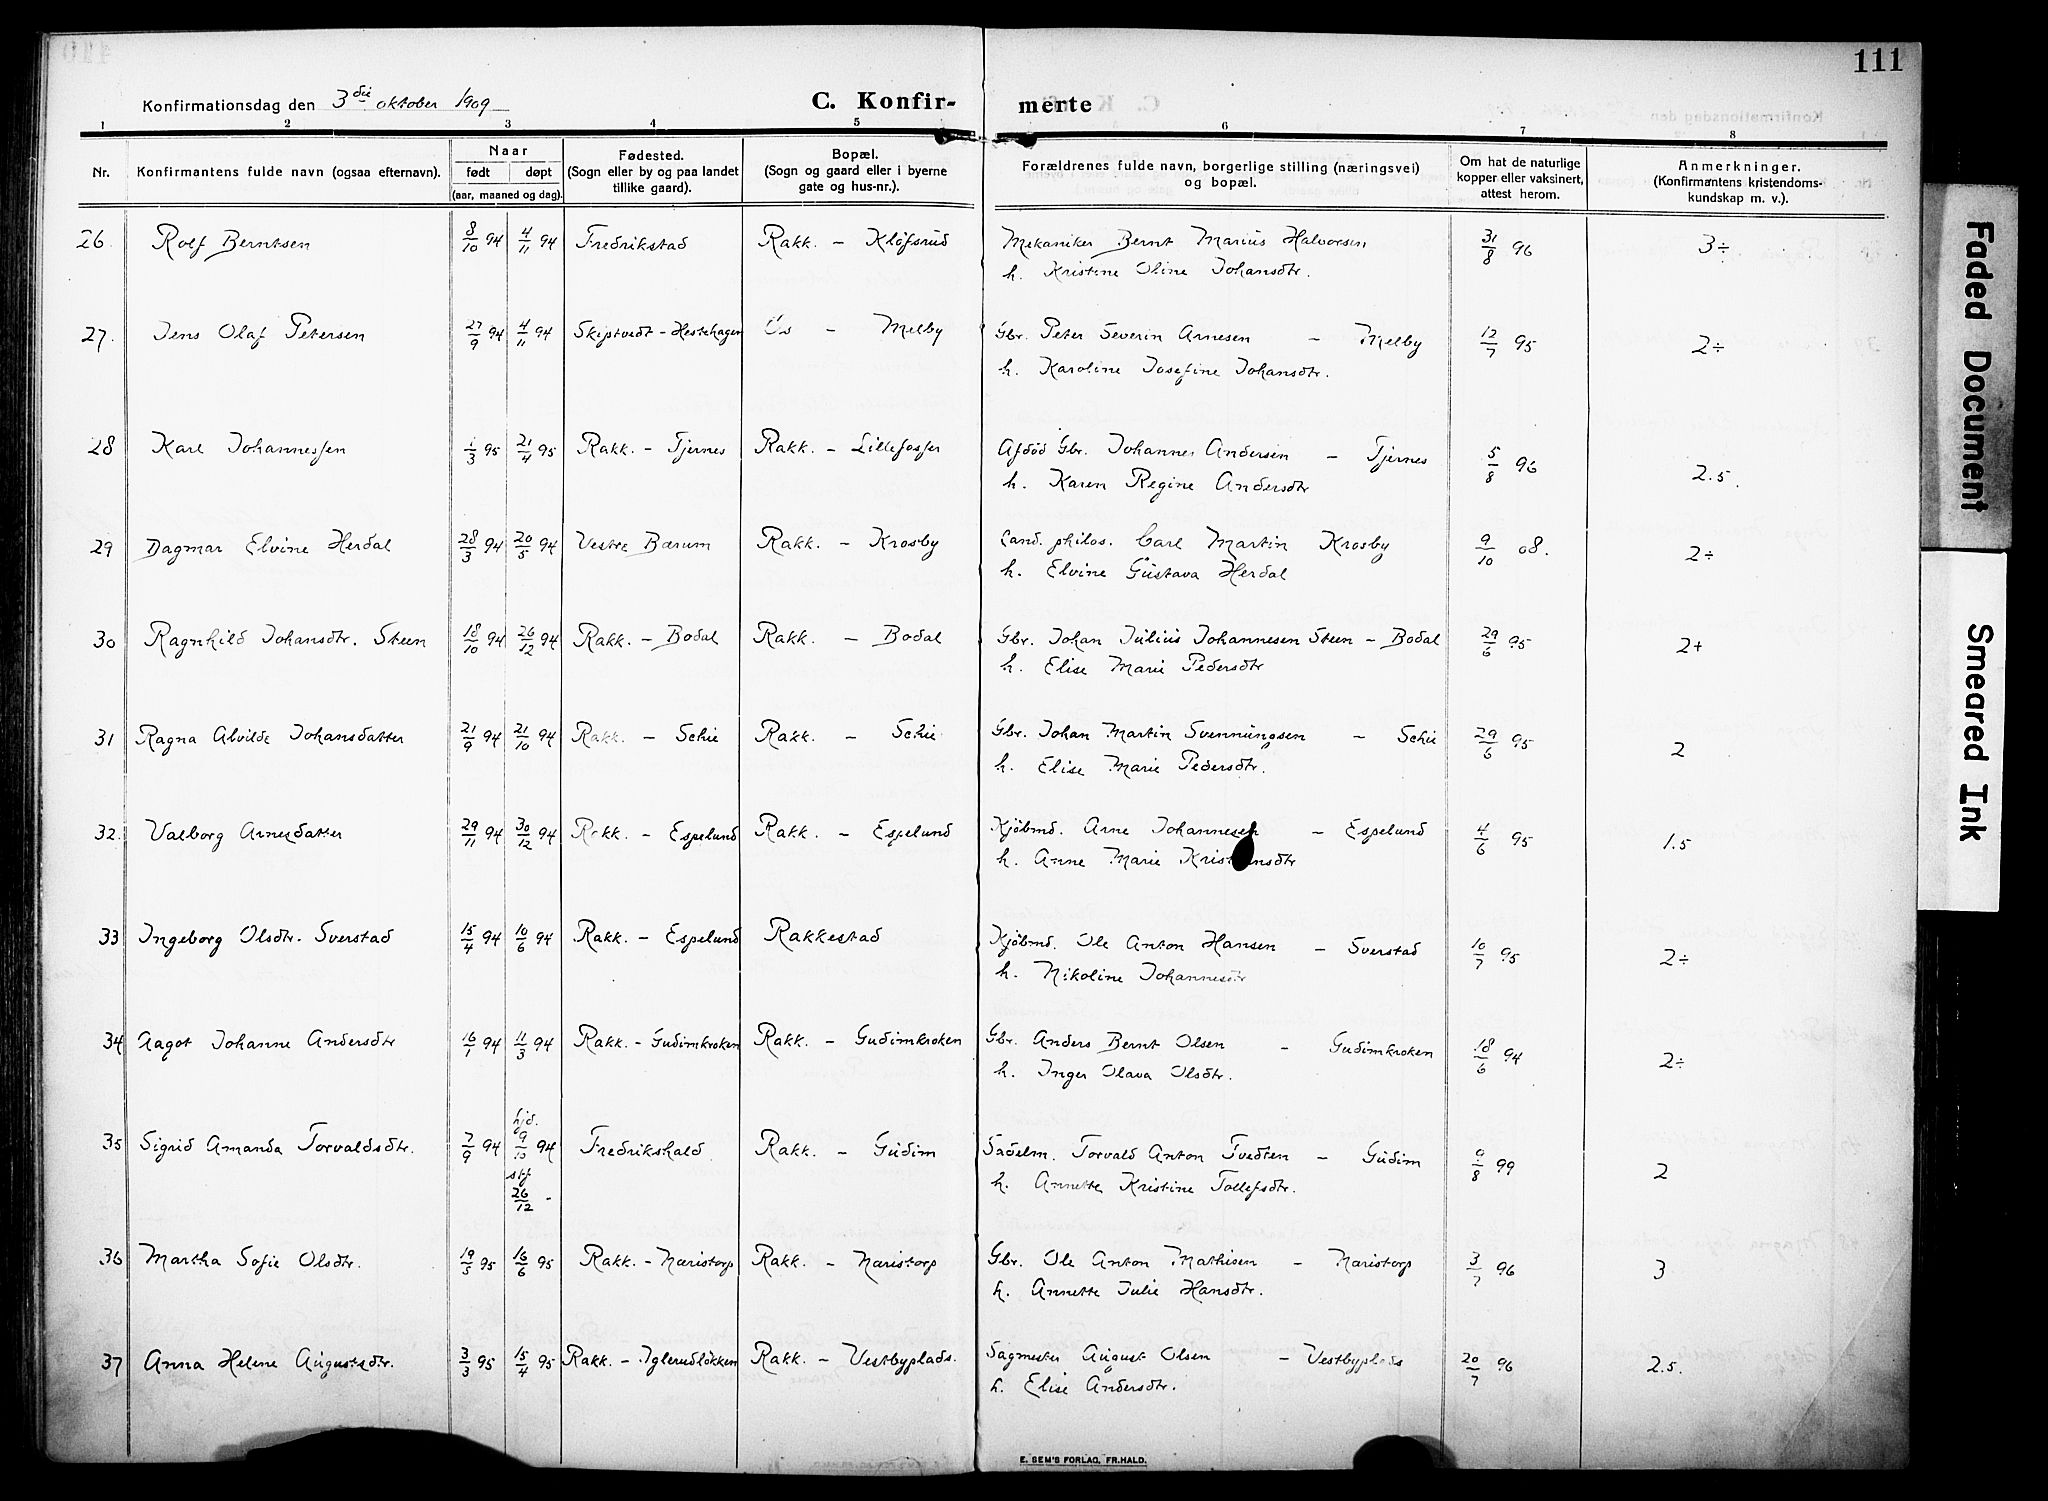 111
Konfirmationsdag den 3die oktober 1909
C. Konfir- merte
1 2 3 4 5 6 7 8
Nr.
Konfirmantens fulde navn (ogsaa efternavn).
Naar
født døpt
(aar, maaned og dag).
Fødested.
(Sogn eller by og paa landet
tillike gaard).
Bopæl.
(Sogn og gaard eller i byerne
gate og hus-nr.).
Forældrenes fulde navn, borgerlige stilling (næringsvei)
og bopæl.
Om hat de naturlige
kopper eller vaksinert,
attest herom.
Anmerkninger.
(Konfirmantens kristendoms-
kundskap m. v.).
26. Rolf Berntsen 8/10 94 4/11 94 Fredrikstad Rakk. - Kløfsrud Mekaniker Bernt Marius Halvorsen 31/8 96 3÷
h. Kristine Oline Johansdtr.
27. Jens Olaf Petersen 27/9 94 4/11 94 Skiptvedt - Hestehagen Os - Melby Gbr. Peter Severin Arnesen - Melby 12/7 95 2÷
h. Karoline Josefine Johansdtr.
28 Karl Johannessen 1/3 95 21/4 95 Rakk. - Tjernes Rakk. - Lillefosser Afdød Gbr. Johannes Andersen - Tjernes 5/8 96 2.5.
h. Karen Regine Andersdtr
29 Dagmar Elvine Herdal 28/3 94 20/5 94 Vestre Bærum Rakk. - Krosby Cand. philos. Carl Martin Krosby 9/10 08. 2÷
h. Elvine Gustava Herdal
30 Ragnhild Johansdtr. Steen 18/10 94 26/12 94 Rakk. - Bodal Rakk. - Bodal Gbr. Johan Julius Johannesen Steen - Bodal 29/6 95 2+
h. Elise Marie Pedersdtr
31 Ragna Alvilde Johansdatter 21/9 94 21/10 94 Rakk. - Schie Rakk. - Schie Gbr. Johan Martin Svenningsen - Schie 29/6 95 2
h. Elise Marie Pedersdtr.
32. Valborg Arnesdatter 29/11 94 30/12 94 Rakk. - Espelund Rakk. - Espelund Kjøbmd. Arne Johannesen - Espelund 4/6 95 1.5
h. Anne Marie Kristiansdtr
33 Ingeborg Olsdtr. Sverstad 15/4 94 10/6 94 Rakk. - Espelund Rakkestad Kjøbmd. Ole Anton Hansen - Sverstad 10/7 95 2÷
h. Nikoline Johannesdtr
34 Aagot Johanne Andersdtr 16/1 94 11/3 94 Rakk. - Gudimkroken Rakk. - Gudimkroken Gbr. Anders Bernt Olsen - Gudimkroken 18/6 94 2÷
h. Inger Olava Olsdtr.
35 Sigrid Amanda Torvaldsdtr. 7/9 94 hjd. 9/10 94 Fredrikshald Rakk. - Gudim Sadelm. Torvald Anton Tvedten - Gudim 9/8 99 2
stf 26/12 - h. Annette Kristine Tollefsdtr.
36 Martha Sofie Olsdtr. 19/5 95 16/6 95 Rakk. - Næristorp Rakk. - Næristorp Gbr. Ole Anton Mathisen - Næristorp 3/7 96 3
h. Annette Julie Hansdtr.
37 Anna Helene Augustsdtr. 3/3 95 15/4 95 Rakk. - Iglerudløkken Rakk. - Vestbyplads. Sagmester August Olsen - Vestbyplads 20/7 96 2.5.
h. Elise Andersdtr.
E. SEM'S FORLAG, FR.HALD.
Faded Document
Smeared Ink